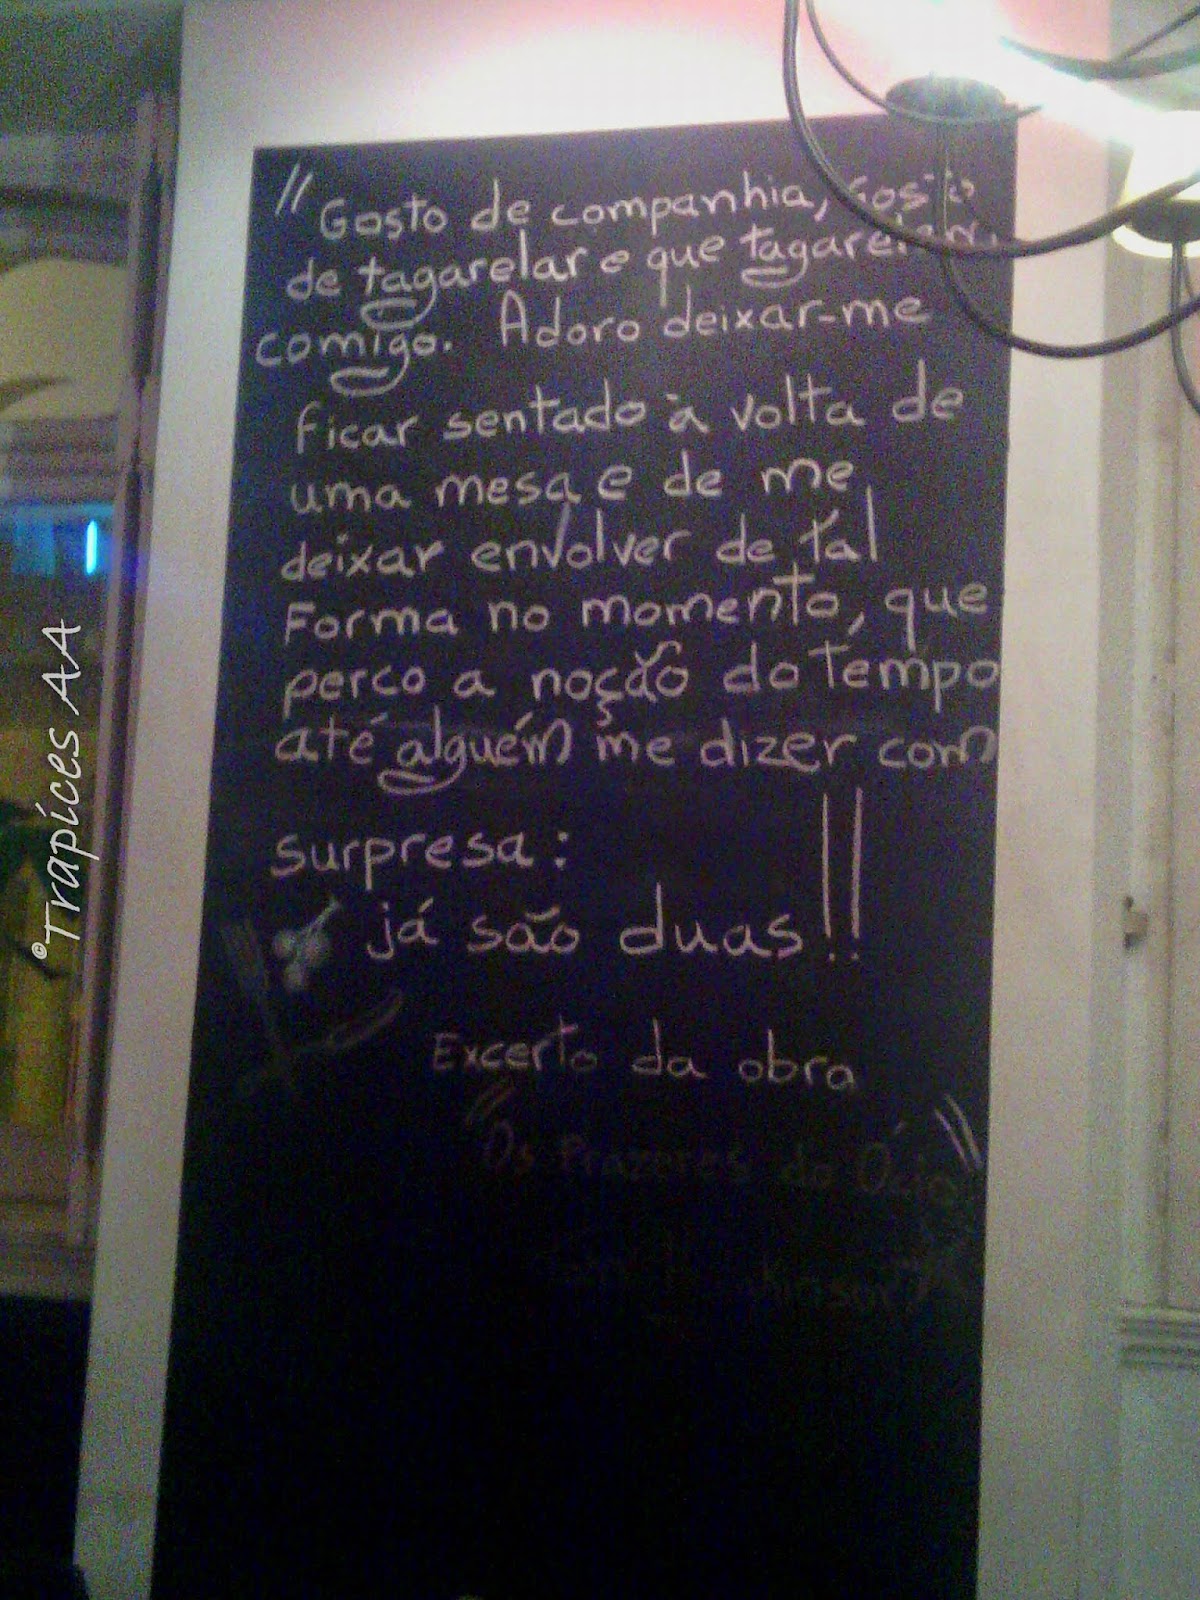 "Gosto de companhia, Gosto
de tagarelar e que tagarelem
comigo. Adoro deixar-me
ficar sentado à volta de
uma mesa e de me
deixar envolver de tal
Forma no momento, que
perco a noção do tempo
até alguém me dizer com
surpresa:
já são duas!!
Excerto da obra
"Os Prazeres do Ócio"
©Trapíces AA